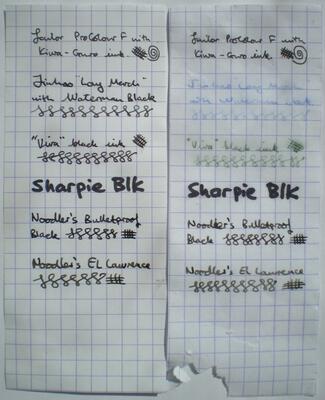 Sailor ProColour F with
Kiwa-Guro ink.
Jinhao "Lady March"
with Waterman Black
"Viva" black ink
Sharpie Blk
Noodler's Bulletproof
Black
Noodler's El Lawrence
Sailor ProColour F with
Kiwa-Guro ink.
Jinhao
with Waterman
"Viva" black ink
Sharpie Blk
Noodler's Bulletproof
Black
Noodler's El Lawrence